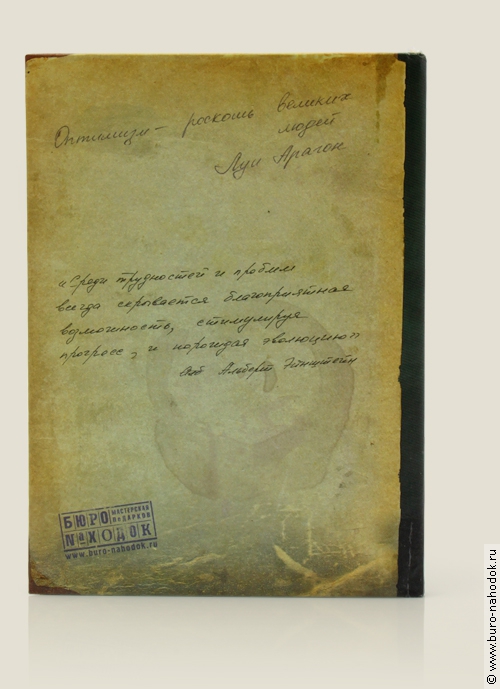 Оптимизм - роскошь великих
людей
Луи Арагон
«Среди трудностей и проблем
всегда скрывается благоприятная
возможность, стимулируя
прогресс, и порождая эволюцию»
Альберт Эйнштейн
БЮРО МАСТЕРСКАЯ ПОДАРКОВ
№АХОДОК
www.buro-nahodok.ru
© www.buro-nahodok.ru